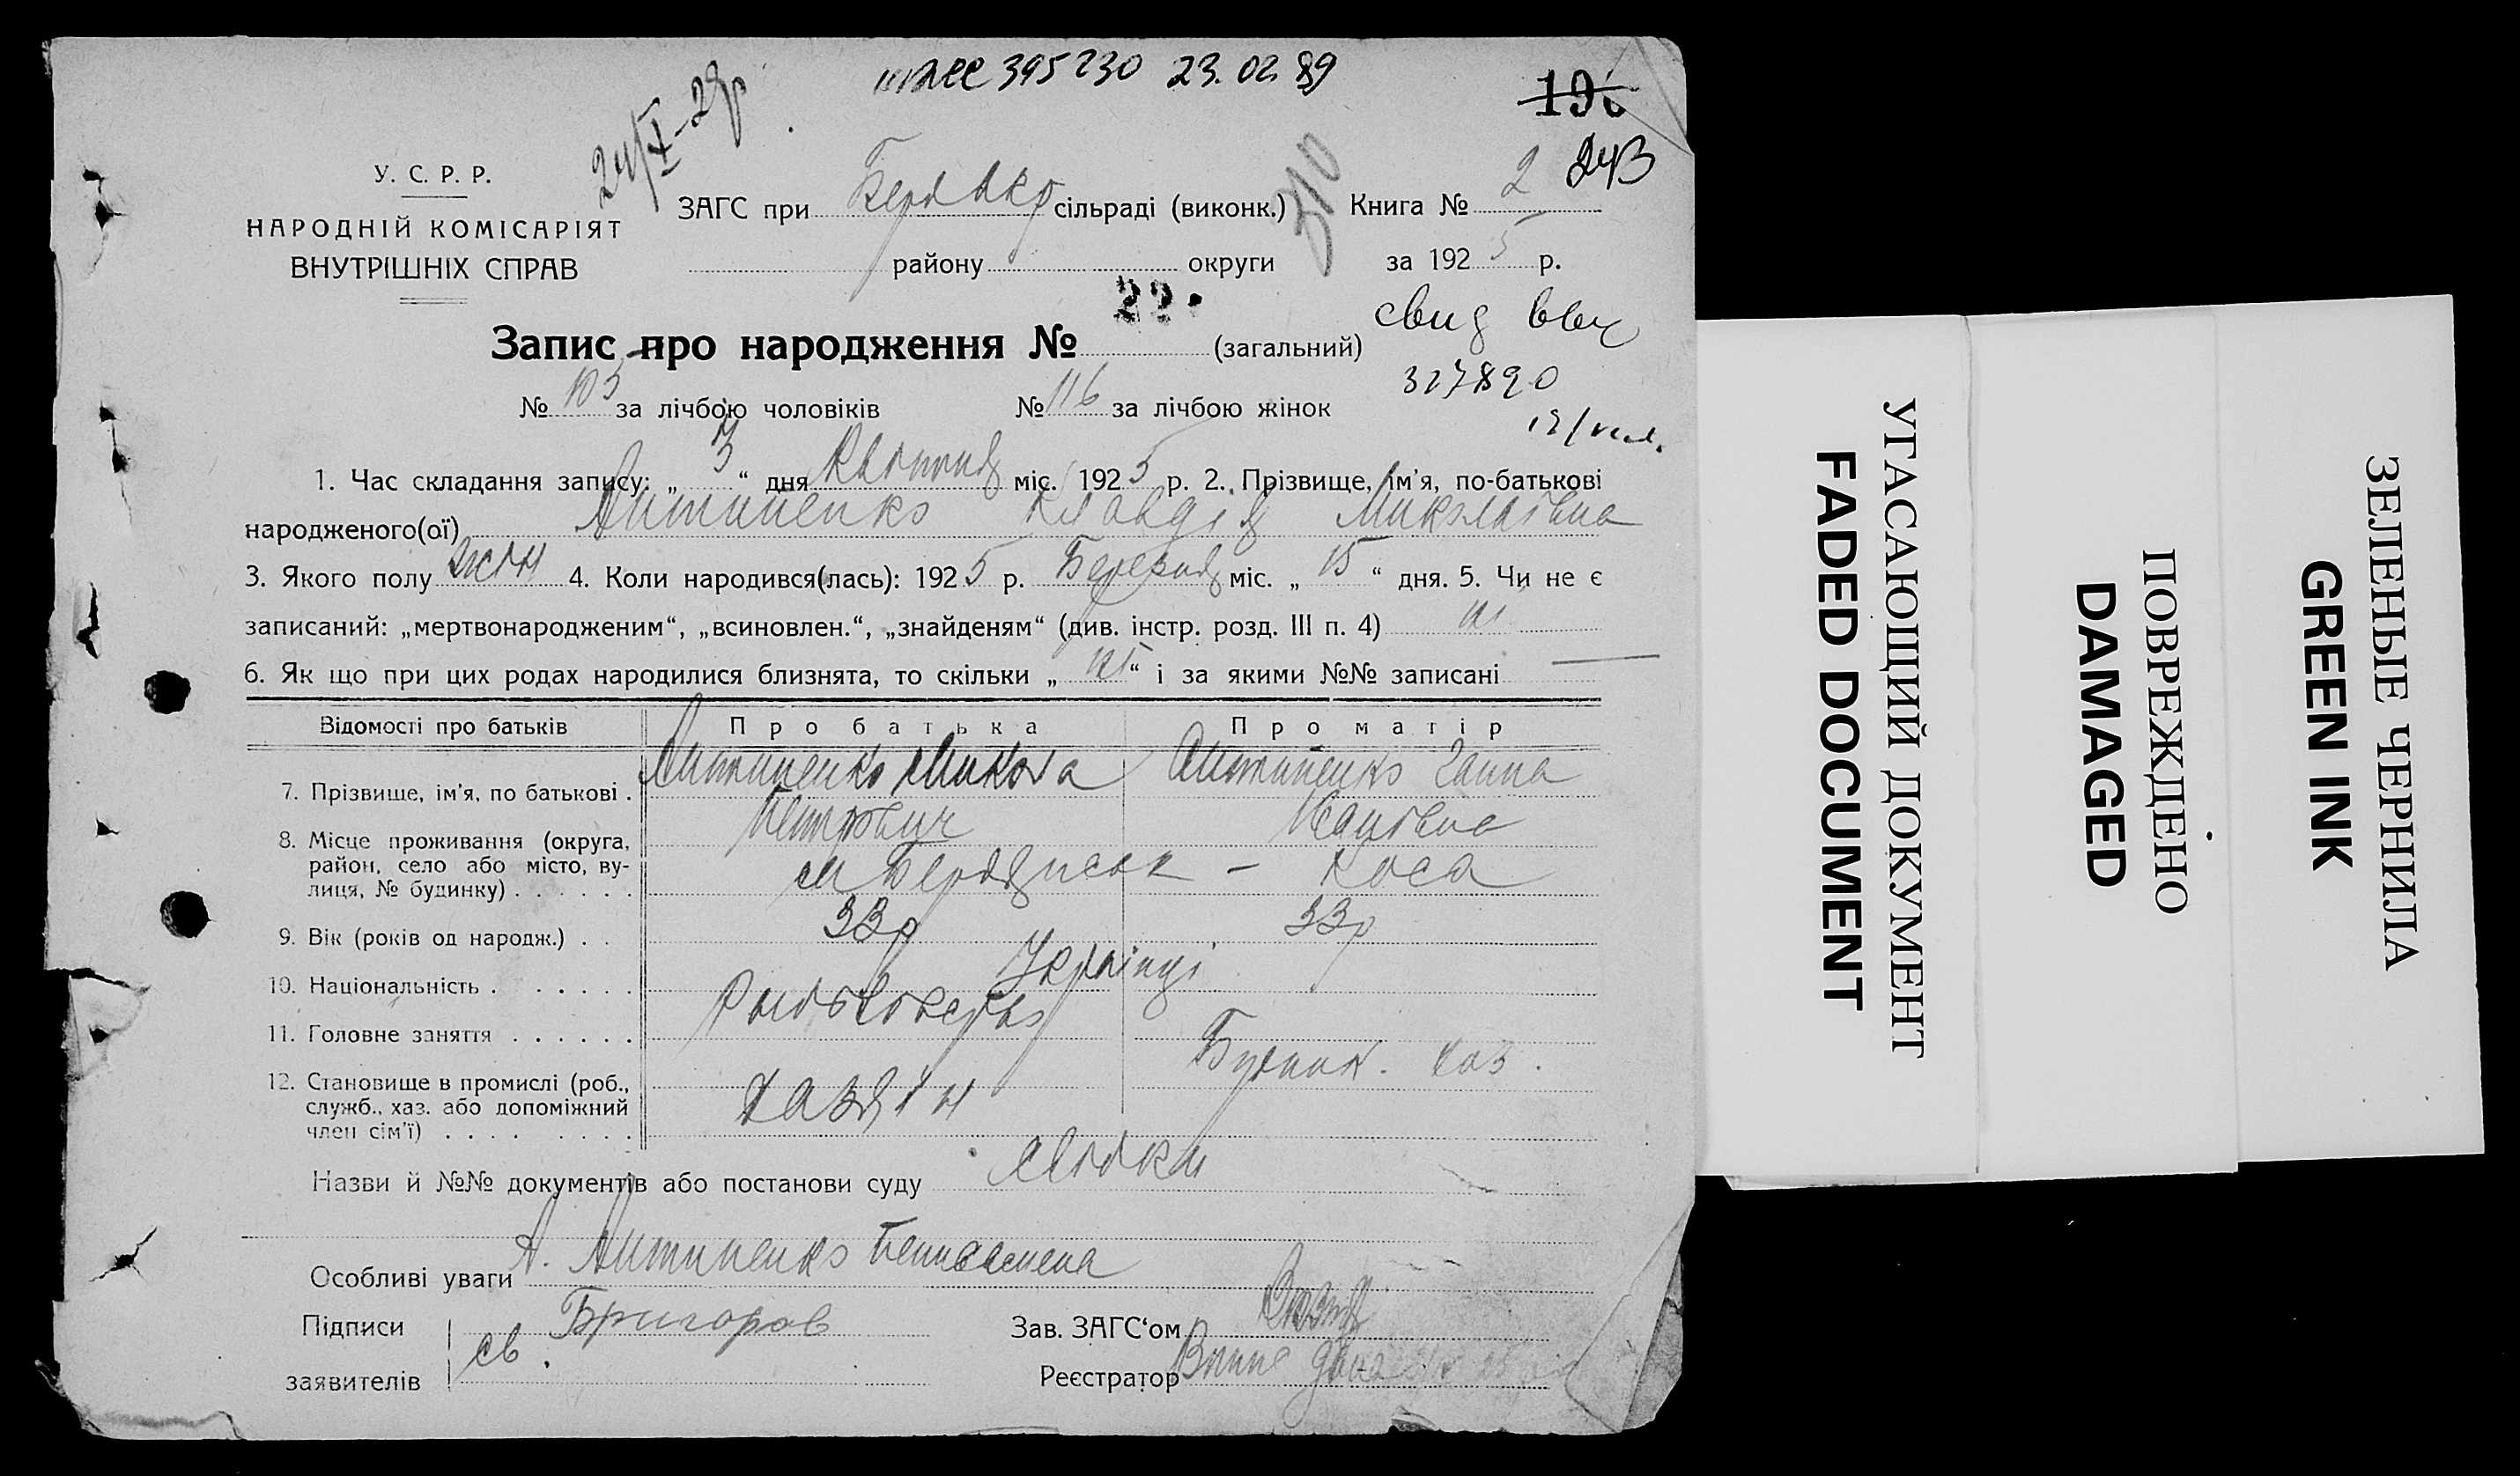 395230 23.02.89
196
24/X-29р
У. С. Р. Р.
НАРОДНІЙ КОМІСАРІЯТ
ВНУТРІШНІХ СПРАВ
ЗАГС при Бердянс сільраді (виконк.) 310 Книга № 2 243
району округи за 1925 р.
Запис про народження № 22 (загальний)
свид выд
327890
№ 105 за лічбою чоловіків № 116 за лічбою жінок
1. Час складання запису: „ 3 “ дня Квітня міс. 1925 р. 2. Прізвище, ім'я, по-батькові
народженого(ої) Антипенко Клавдія Миколаївна
3. Якого полу жін 4. Коли народився(лась): 1925 р. Березня міс. „ 15 “ дня. 5. Чи не є
записаний: „мертвонародженим“, „всиновлен.“, „знайденям“ (див. інстр. розд. III п. 4) ні
6. Як що при цих родах народилися близнята, то скільки „ ні “ і за якими №№ записані —
Відомості про батьків Про батька Про матір
7. Прізвище, ім'я, по батькові . Антипенко Микола Антипенко Ганна
Петрович Іванівна
8. Місце проживання (округа,
район, село або місто, ву-
лиця, № будинку) . . . . . . м Бердянськ - Коса
9. Вік (років од народж.) . . 33р 33р
10. Національність . . . . . . Українці
11. Головне заняття . . . . . . Риболовство
12. Становище в промислі (роб.,
служб., хаз. або допоміжний
член сім'ї) . . . . . . . . Хазяїн Будинк. хаз.
Назви й №№ документів або постанови суду Свідки
А. Антипенко
Особливі уваги
Підписи
заявителів
св. Григоров
Зав. ЗАГС‘ом
Реєстратор
УГАСАЮЩИЙ ДОКУМЕНТ
FADED DOCUMENT
ПОВРЕЖДЕНО
DAMAGED
ЗЕЛЕНЫЕ ЧЕРНИЛА
GREEN INK